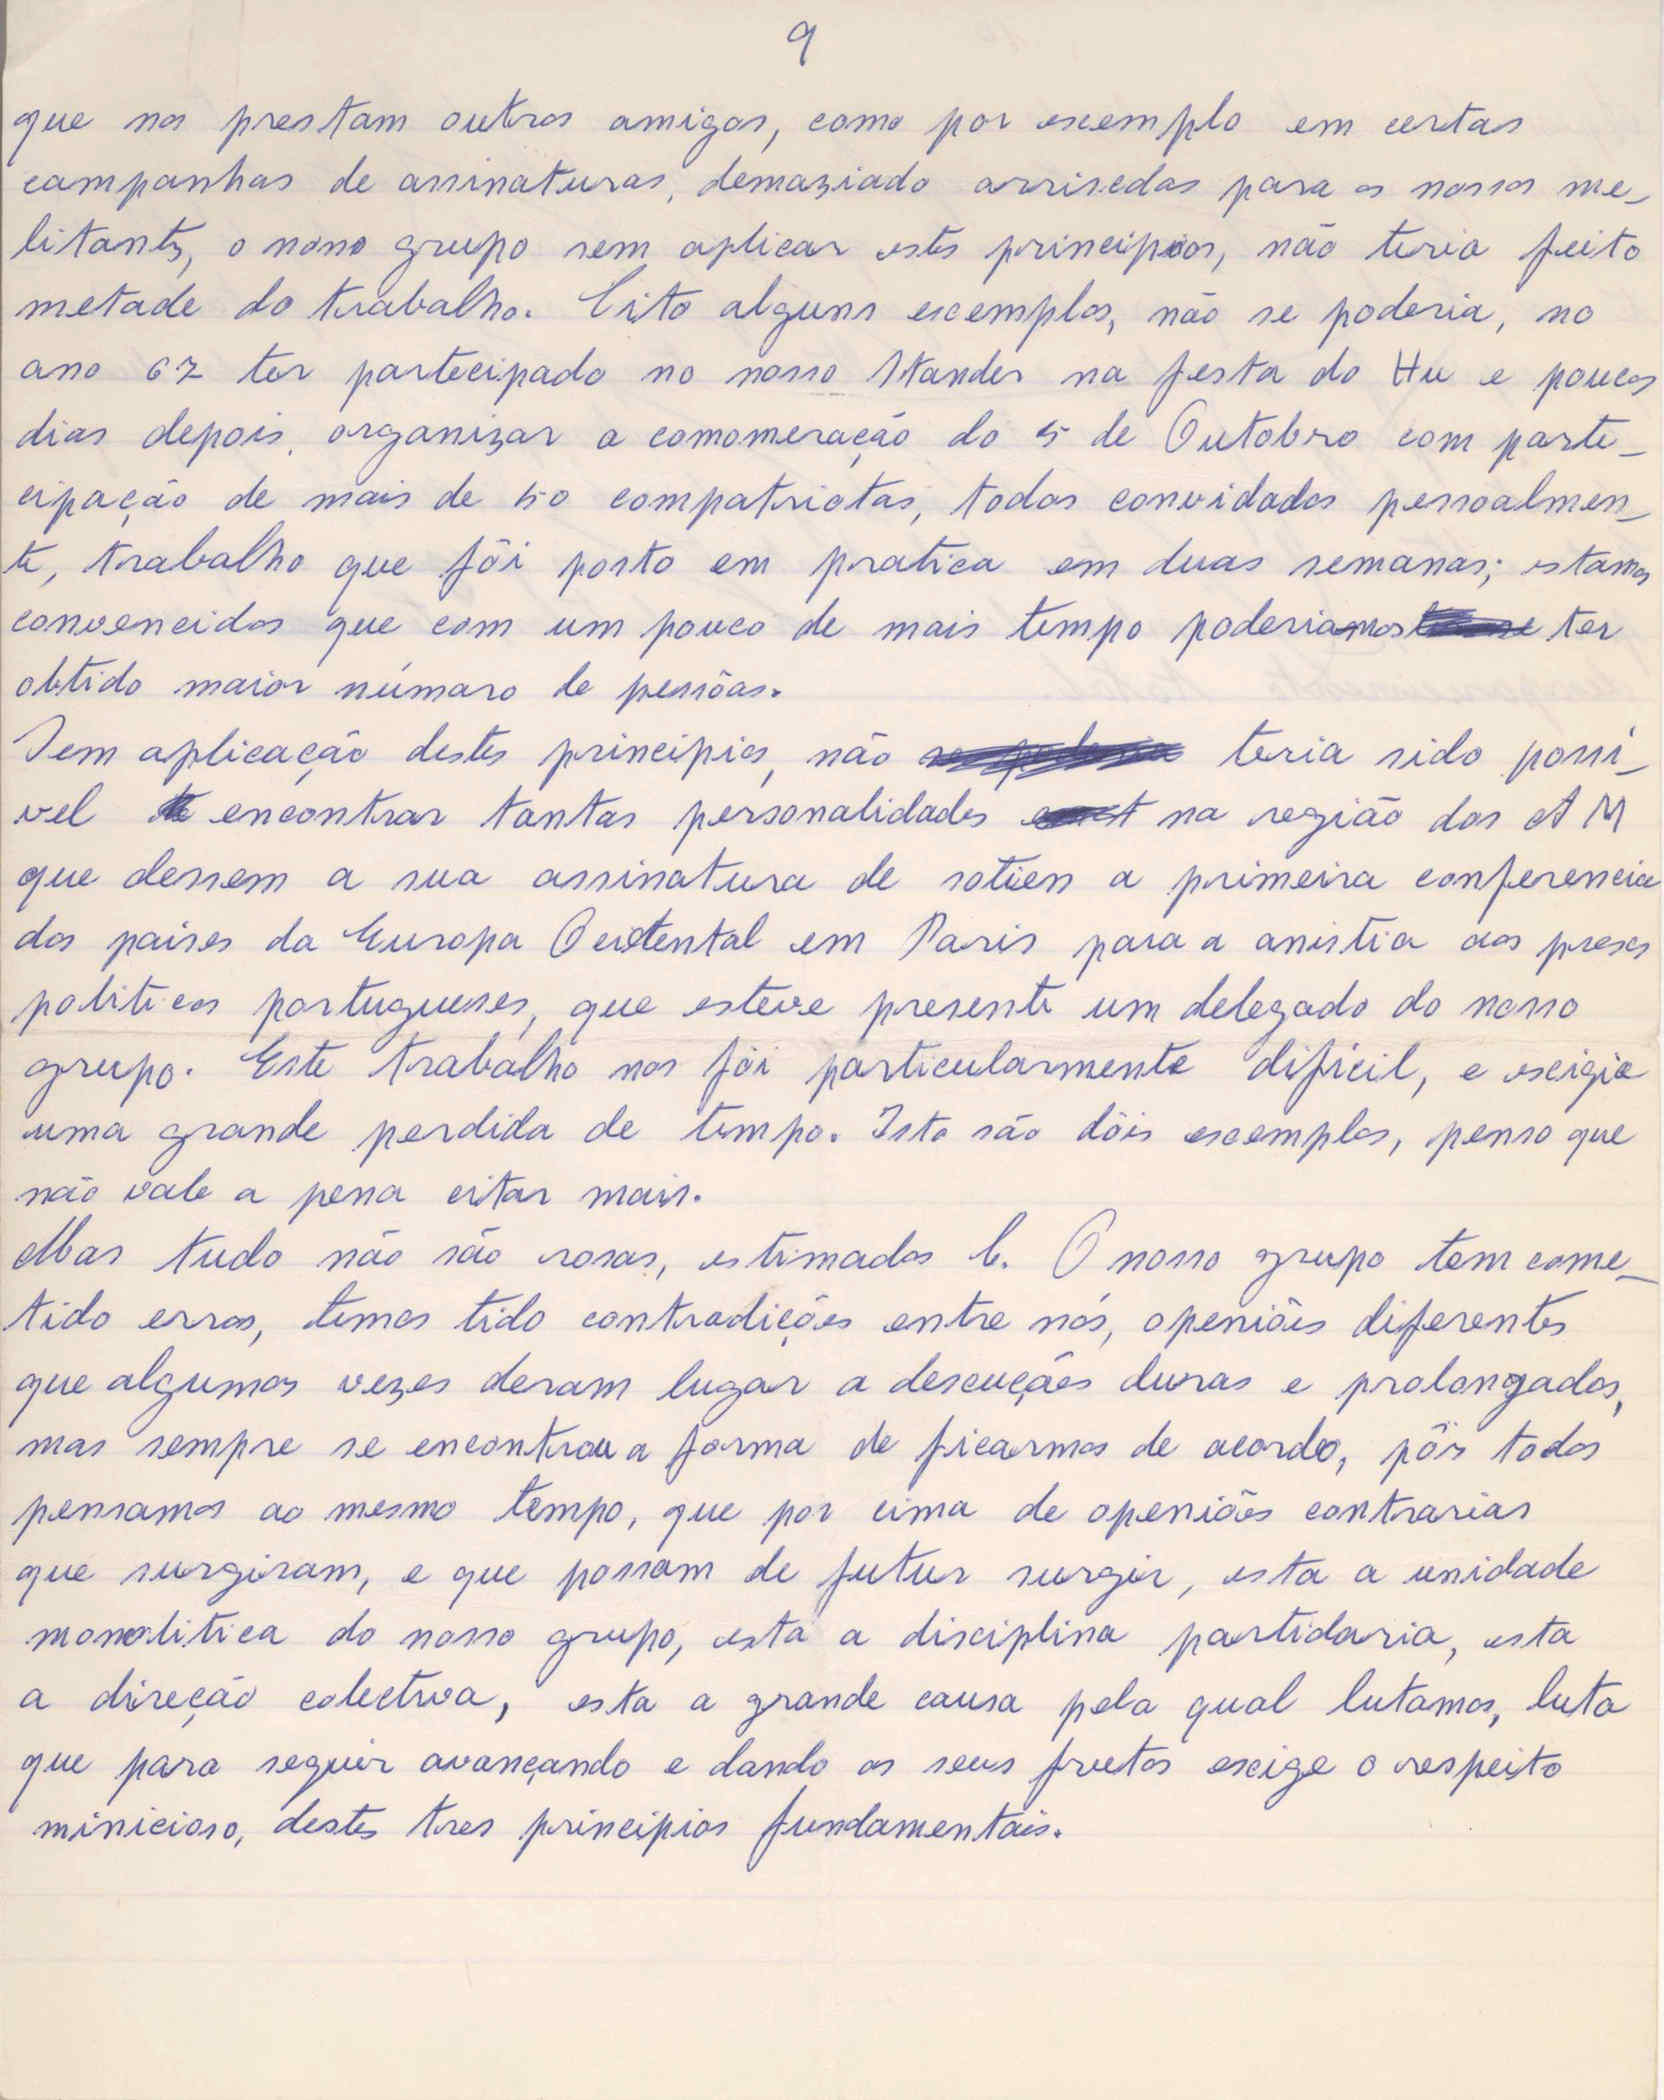 9
que nos prestam outros amigos, como por escemplo em certas
campanhas de assinaturas, demaziado arriscadas para os nossos me-
litantes, o nosso grupo sem aplicar estes principios, não teria feito
metade do trabalho. Cito alguns escemplos, não se poderia, no
ano 67 ter partecipado no nosso Stander na festa do Hu e poucos
dias depois, organizar a comomeração do 5 de Outobro com parte-
cipação de mais de 50 compatriotas, todos convidados pessoalmen-
te, trabalho que fôi posto em pratica em duas semanas; estamos
convencidos que com um pouco de mais tempo poderiamos ter
obtido maior númaro de pessôas.
Sem aplicação destes principios, não teria sido possi-
vel encontrar tantas personalidades na região dos A M
que dessem a sua assinatura de sotien a primeira conferencia
dos paises da Europa Ocidental em Paris para a anistia aos presos
politicos portugueses, que esteve presente um delegado do nosso
grupo. Este trabalho nos fôi particularmente difícil, e escigio
uma grande perdida de tempo. Isto são dôis escemplos, penso que
não vale a pena citar mais.
Mas tudo não são rosas, estimados C. O nosso grupo tem come-
tido erros, temos tido contradições entre nós, openiões diferentes
que algumas vezes deram lugar a descuções duras e prolongadas,
mas sempre se encontrou a forma de ficarmos de acordo, pôis todos
pensamos ao mesmo tempo, que por cima de openiões contrarias
que surgiram, e que possam de futur surgir, esta a unidade
monolitica do nosso grupo, esta a disciplina partidaria, esta
a direção colectiva, esta a grande causa pela qual lutamos, luta
que para seguir avançando e dando os seus frutos escige o respeito
minicioso, destes tres principios fundamentais.